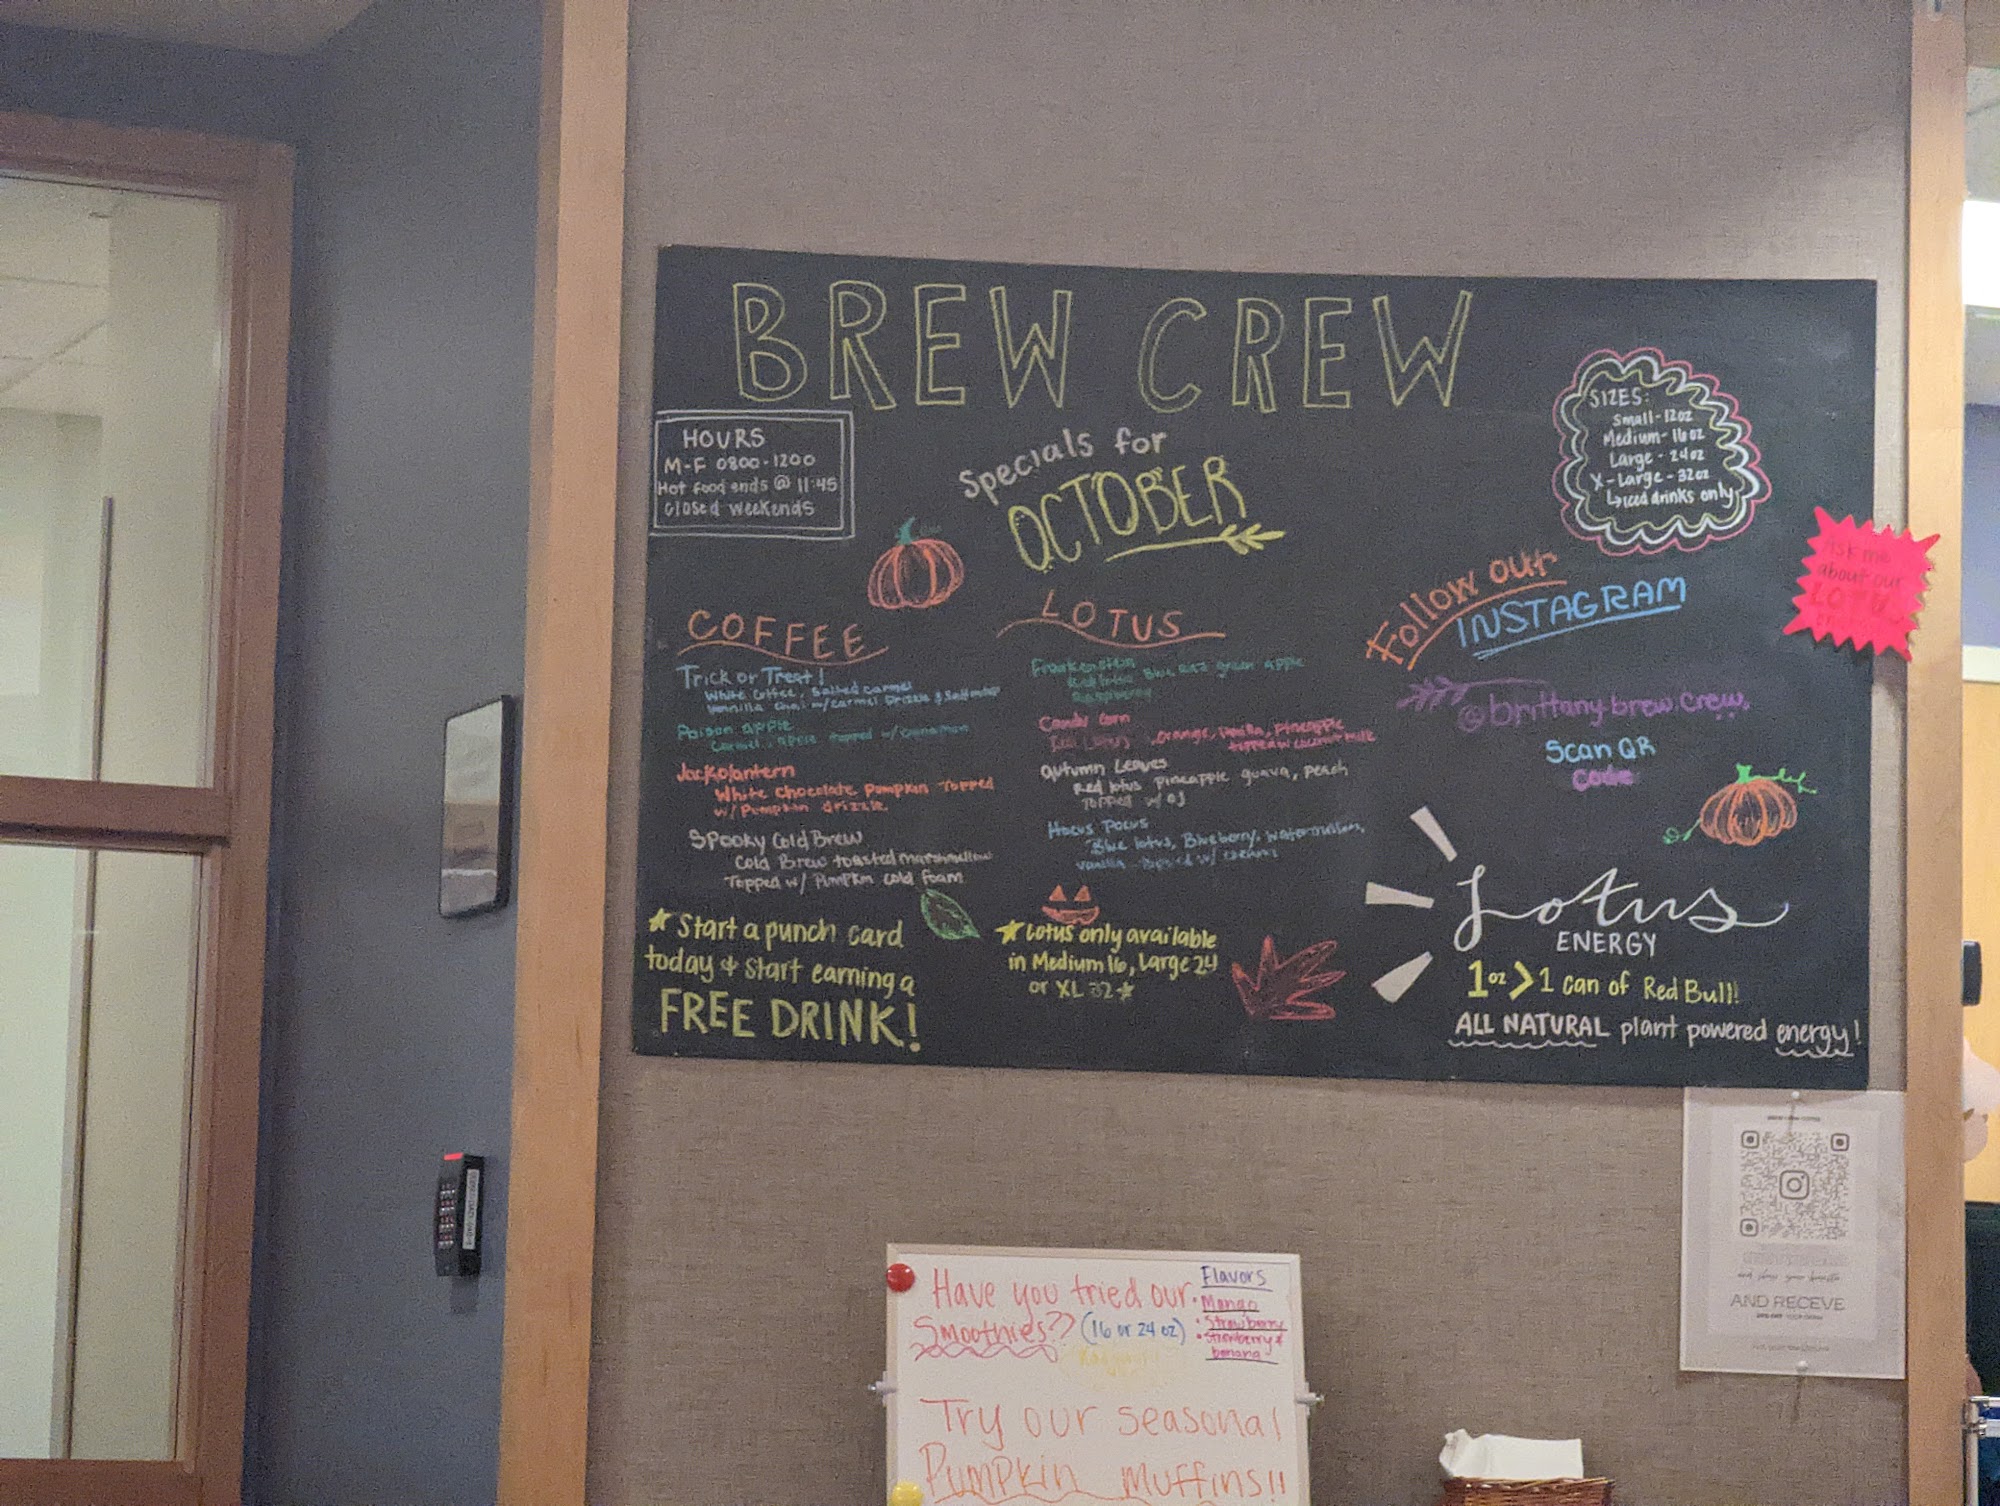 BREW CREW
HOURS
M-F 0800-1200
Hot food ends @ 11:45
Closed weekends
Specials for
OCTOBER
SIZES:
Small - 12oz
Medium - 16oz
Large - 24oz
X-Large - 32oz
↳iced drinks only
Ask me
about our
LOTUS
COFFEE
Trick or Treat!
White Coffee, Salted Carmel
Vanilla Chai w/ Carmel Drizzle &
Poison Apple
Carmel, apple topped w/ cinnamon
Jackolantern
White chocolate pumpkin topped
w/ Pumpkin drizzle
Spooky Cold Brew
Cold Brew toasted marshmellow
Topped w/ Pumpkin cold foam
★ Start a punch card
today & start earning a
FREE DRINK!
LOTUS
Frankenstein
Blue green apple
Raspberry
Candy Corn
Red Lotus, orange, vanilla, pineapple
topped w coconut milk
Autumn Leaves
Red lotus pineapple guava, peach
Topped w/ OJ
Hocus Pocus
Blue lotus, Blueberry, watermelon,
vanilla topped w/ cream
★ Lotus only available
in Medium 16, Large 24
or XL 32 ★
Follow our
INSTAGRAM
@brittany.brew.crew
Scan QR
code
Lotus
ENERGY
1oz > 1 can of Red Bull!
ALL NATURAL plant powered energy!
AND RECEVE
Have you tried our
Smoothies?? (16 or 24 oz)
Flavors
• Mango
• Strawberry
• Strawberry &
banana
Try our seasonal
Pumpkin muffins!!